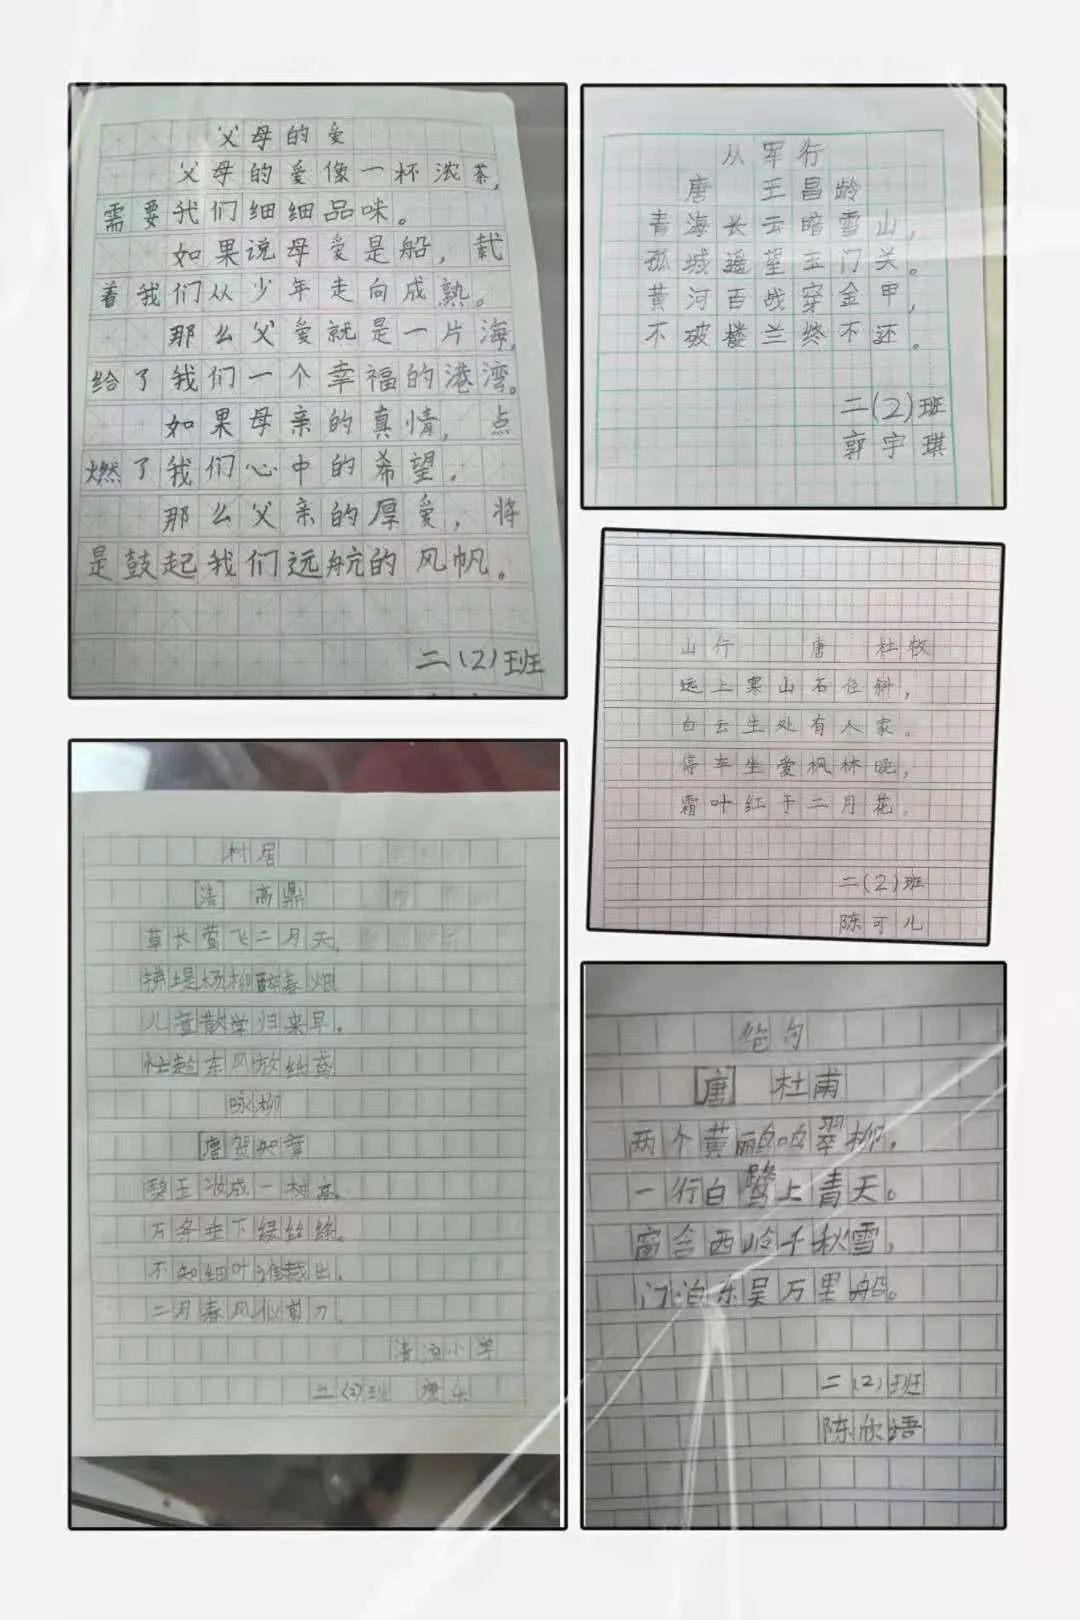 父母的爱
父母的爱像一杯浓茶,
需要我们细细品味。
如果说母爱是船,载
着我们从少年走向成熟。
那么父爱就是一片海,
给了我们一个幸福的港湾。
如果母亲的真情,点
燃了我们心中的希望。
那么父亲的厚爱,将
是鼓起我们远航的风帆。
二(2)班
从军行
唐 王昌龄
青海长云暗雪山,
孤城遥望玉门关。
黄河百战穿金甲,
不破楼兰终不还。
二(2)班
郭宇琪
山行 唐 杜牧
远上寒山石径斜,
白云生处有人家。
停车坐爱枫林晚,
霜叶红于二月花。
二(2)班
陈可儿
村居
[清] 高鼎
草长莺飞二月天,
拂堤杨柳醉春烟
儿童散学归来早。
忙趁东风放纸鸢
咏柳
[唐]贺知章
碧玉妆成一树高。
万条垂下绿丝绦。
不知细叶谁裁出,
二月春风似剪刀。
清源小学
二(2)班
绝句
[唐] 杜甫
两个黄鹂鸣翠柳,
一行白鹭上青天。
窗含西岭千秋雪,
门泊东吴万里船。
二(2)班
陈欣